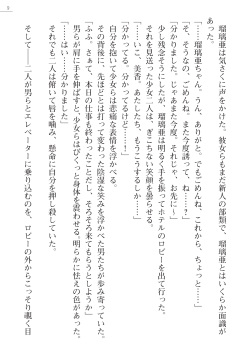 9
瑠璃亜は気さくに声をかけた。彼女らもまだ新人の部類で、瑠璃亜とはいくらか面識
あった。
「瑠璃亜ちゃん。うん、ありがと。でもごめんね。これから、ちょっと……」
「そ、そうなの。ごめんね、また今度誘って、ね……？」
「分かりました。じゃあまた今度。それじゃ、お先に～」
少し残念そうにしたが、瑠璃亜は明るく手を振ってホテルのロビーを出て行った。
それを見送った少女二人は、ぎこちない笑顔を曇らせる。
「こ、怖い……美香、あたしたち、もうこうするしか……」
自分を抱いて、少女たちは悲痛な表情を浮かべる。
その背後に、先ほどとは打って変わった陰湿な笑みを浮かべた男たちが歩み寄っていた。
「ふふ、さぁて、本日の仕事も終わったことだし、そろそろ来てもらうとしようか」
男らが肩に手を伸ばすと、少女らはびくっと身体を震わせる。明らかに怯えの色があった。
「……はい……分かりました」
それでも二人は俯いて唇を噛み、懸命に声を押し殺していた。
そして――二人が男らとエレベーターに乗り込むのを、ロビーの外からこっそり覗く目